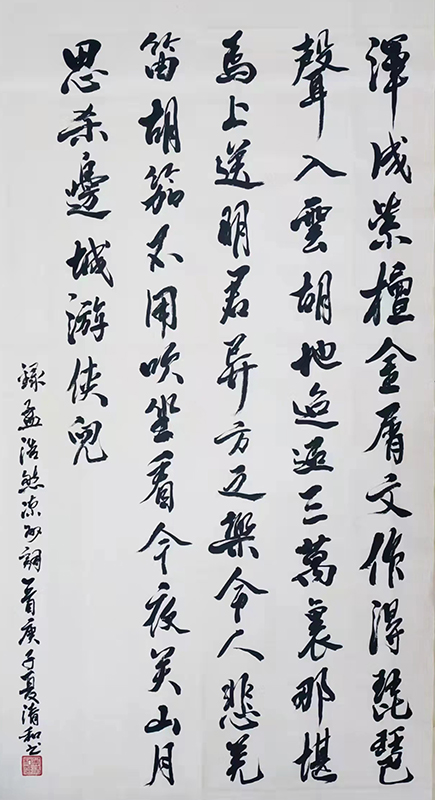 渾成紫檀金屑文作得琵琶
聲入雲胡地迢迢三萬裏那堪
馬上送明君异方之樂令人悲羌
笛胡笳不用吹坐看今夜关山月
思杀邊城游侠兒
録孟浩然凉州詞一首庚子夏清和书